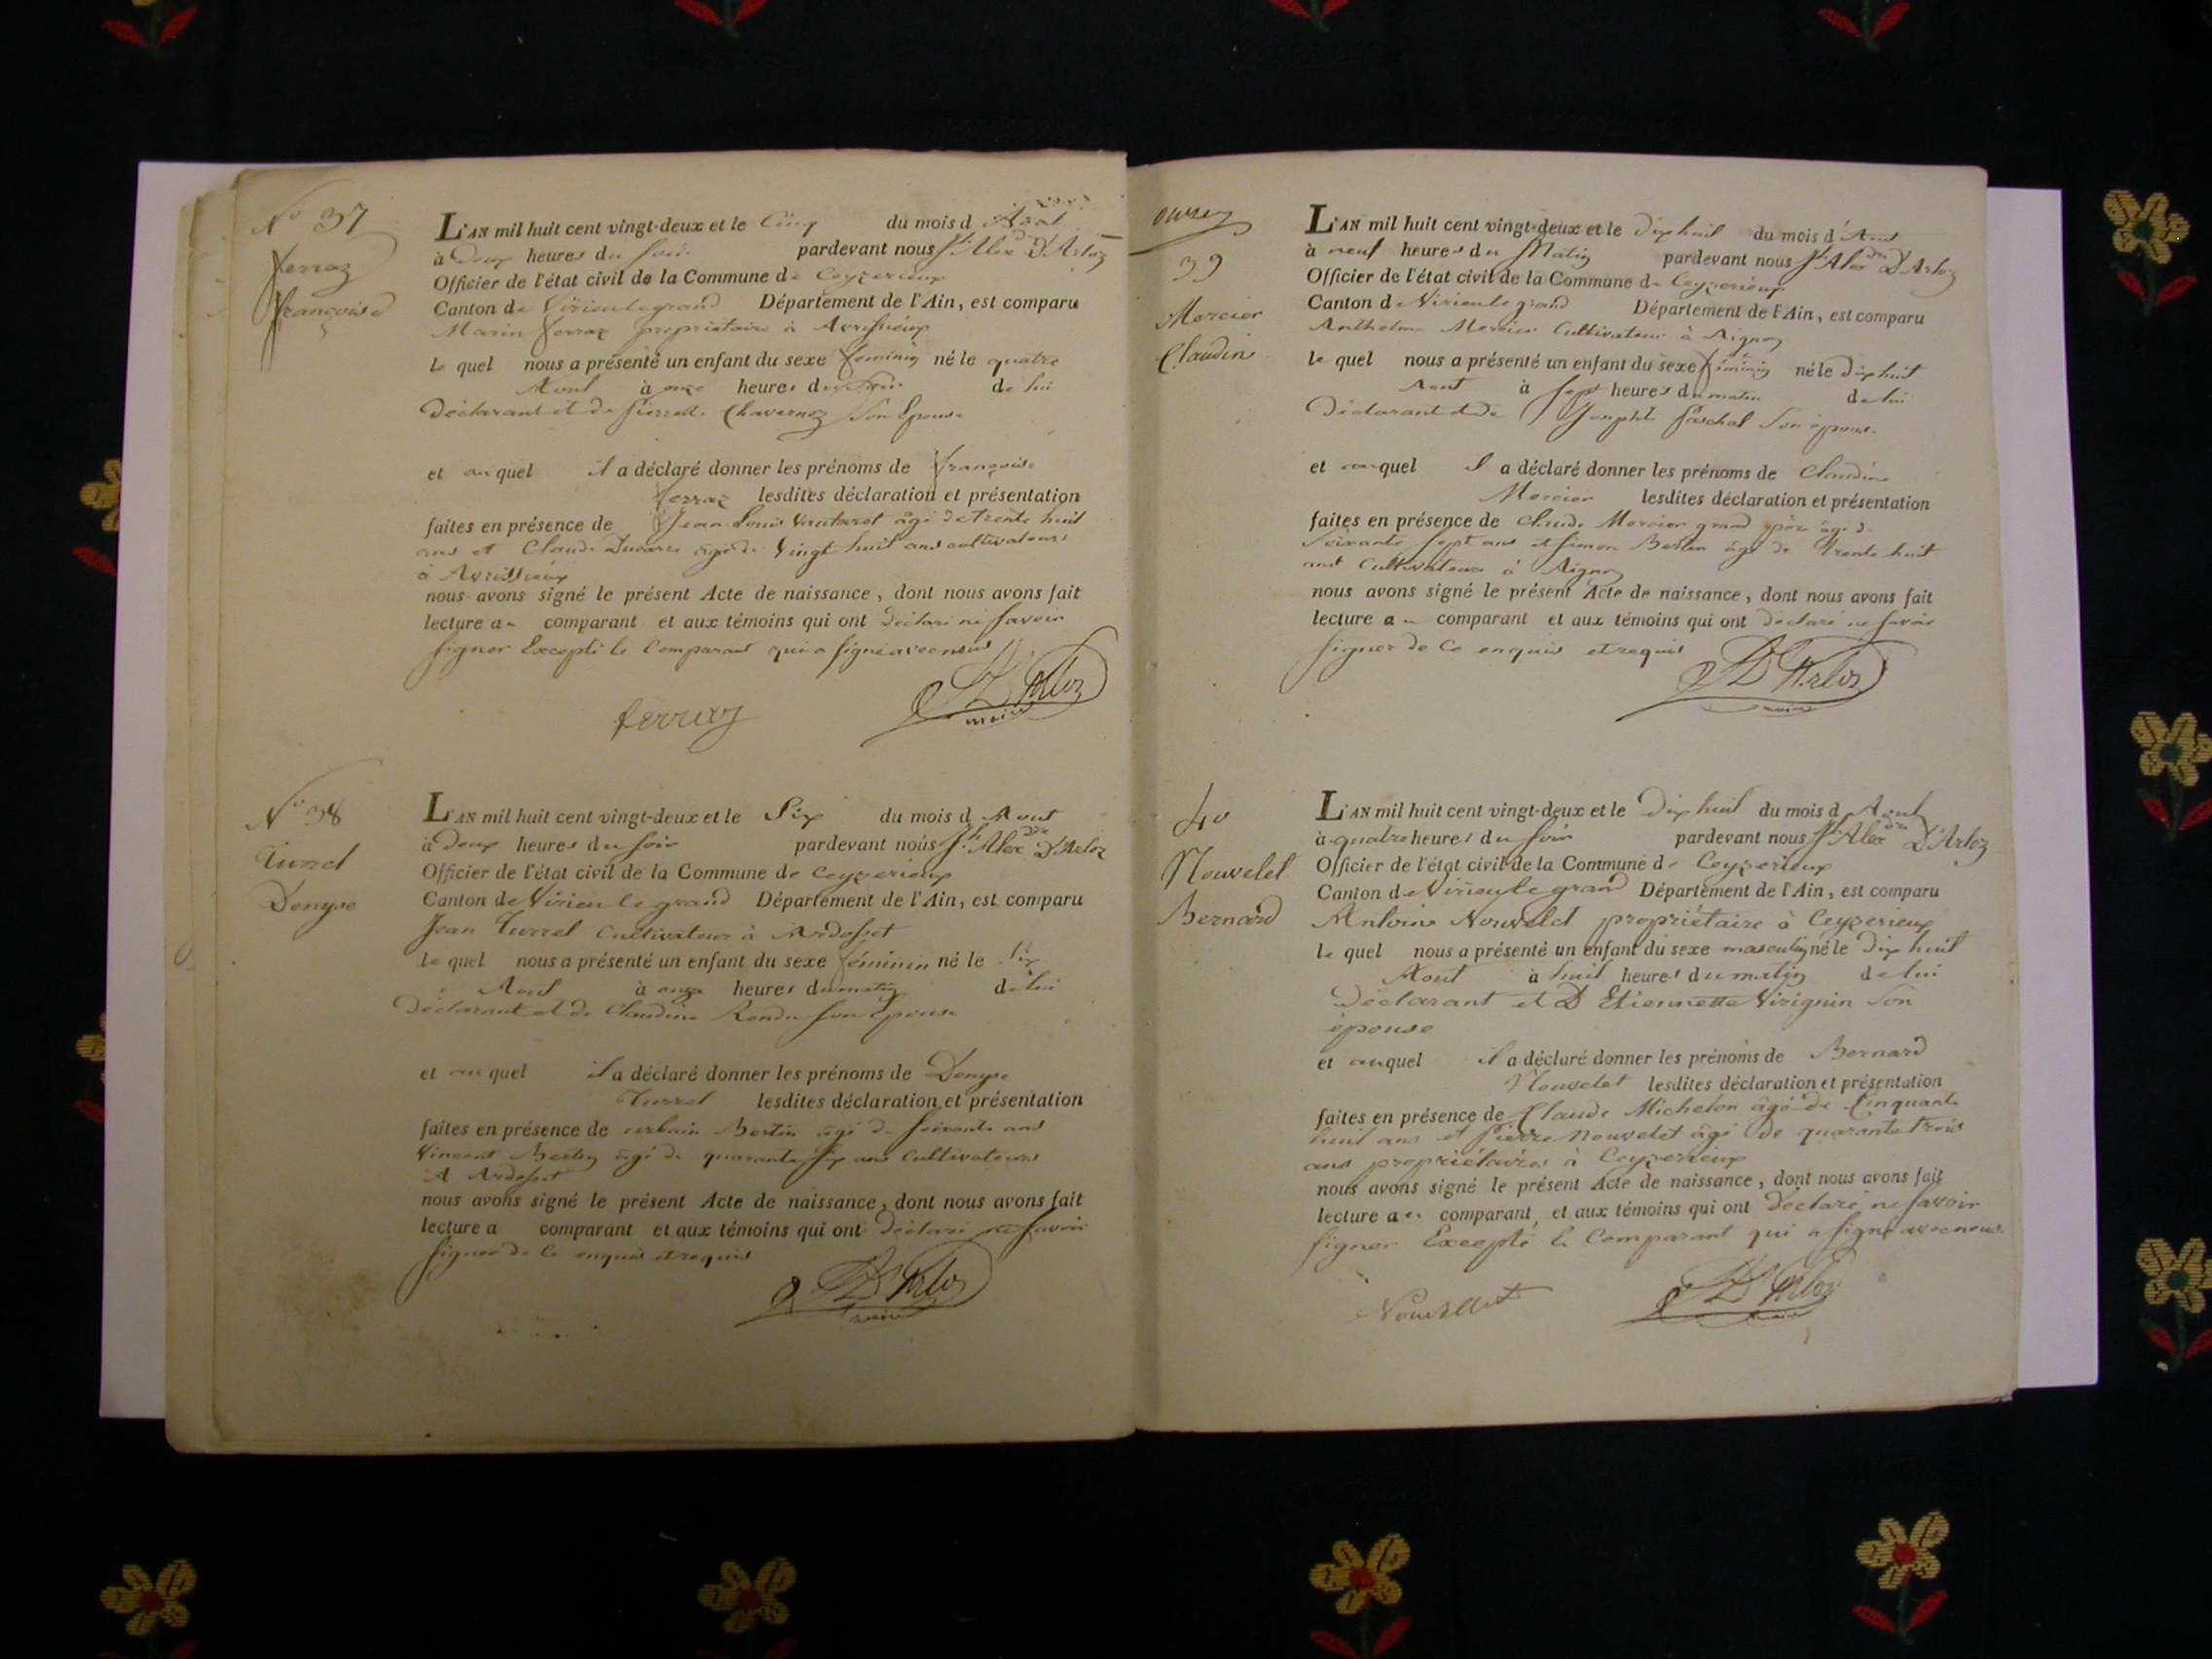 N° 37
ferraz
françoise
L'AN mil huit cent vingt-deux et le Cinq du mois d Aout
à Deux heures du Soir pardevant nous Alex D'Arloz
Officier de l'état civil de la Commune de Ceyzerieux
Canton de Virieulegrand Département de l'Ain, est comparu
Marin ferraz propriétaire à Avrissieux
le quel nous a présenté un enfant du sexe féminin né le quatre
Aout à onze heures du Soir de lui
Déclarant et de pierrette Chavernoz Son Epouse
et auquel il a déclaré donner les prénoms de françoise
ferraz lesdites déclaration et présentation
faites en présence de Jean Louis âgé de trente huit
ans et Claude Ducarre âgé de Vingt huit ans cultivateurs
à Avrissieux
nous avons signé le présent Acte de naissance, dont nous avons fait
lecture au comparant et aux témoins qui ont déclaré ne Savoir
Signer Excepté le Comparant qui a Signé avec nous
ferraz D'Arloz
maire
N° 38
Turrel
Denyse
L'AN mil huit cent vingt-deux et le Six du mois d Aout
à Deux heures du Soir pardevant nous Alex D'Arloz
Officier de l'état civil de la Commune de Ceyzerieux
Canton de Virieu le grand Département de l'Ain, est comparu
Jean Turrel Cultivateur à Ardosset
le quel nous a présenté un enfant du sexe féminin né le Six
Aout à onze heures du matin de lui
Déclarant et de Claudine Rendu Son Epouse
et auquel il a déclaré donner les prénoms de Denyse
Turrel lesdites déclaration et présentation
faites en présence de urbain Bertin âgé de Soixante ans
Vincent Bertin âgé de quarante Six ans Cultivateurs
A Ardosset
nous avons signé le présent Acte de naissance, dont nous avons fait
lecture a comparant et aux témoins qui ont déclaré ne Savoir
Signer de Ce enquis et requis
D'Arloz
maire
39
Mercier
Claudine
L'AN mil huit cent vingt-deux et le Dix huit du mois d'Aout
à neuf heures du Matin pardevant nous Alex D'Arloz
Officier de l'état civil de la Commune de Ceyzerieux
Canton de Virieulegrand Département de l'Ain, est comparu
Anthelme Mercier Cultivateur à Aignoz
le quel nous a présenté un enfant du sexe féminin né le Dix huit
Aout à Sept heures du matin de lui
Déclarant et de Josephte Paschal Son épouse
et auquel Il a déclaré donner les prénoms de Claudine
Mercier lesdites déclaration et présentation
faites en présence de Claude Mercier grand père âgé de
Soixante Sept ans et Simon Bertin âgé de Trente huit
ans Cultivateurs à Aignoz
nous avons signé le présent Acte de naissance, dont nous avons fait
lecture au comparant et aux témoins qui ont déclaré ne Savoir
Signer de Ce enquis et requis
D'Arloz
maire
40
Nouvelet
Bernard
L'AN mil huit cent vingt-deux et le Dix huit du mois d Aout
à quatre heures du Soir pardevant nous Alex D'Arloz
Officier de l'état civil de la Commune de Ceyzerieux
Canton de Virieu le grand Département de l'Ain, est comparu
Antoine Nouvelet propriétaire à Ceyzerieux
le quel nous a présenté un enfant du sexe masculin né le Dix huit
Aout à huit heures du matin de lui
Déclarant et D Etiennette Virignin Son
épouse
et auquel il a déclaré donner les prénoms de Bernard
Nouvelet lesdites déclaration et présentation
faites en présence de Claude Michelon âgé de Cinquante
huit ans et pierre Nouvelet âgé de quarante trois
ans propriétaires à Ceyzerieux
nous avons signé le présent Acte de naissance, dont nous avons fait
lecture au comparant et aux témoins qui ont Déclaré ne Savoir
Signer Excepté le Comparant qui a Signé avec nous
Nouvellet D'Arloz